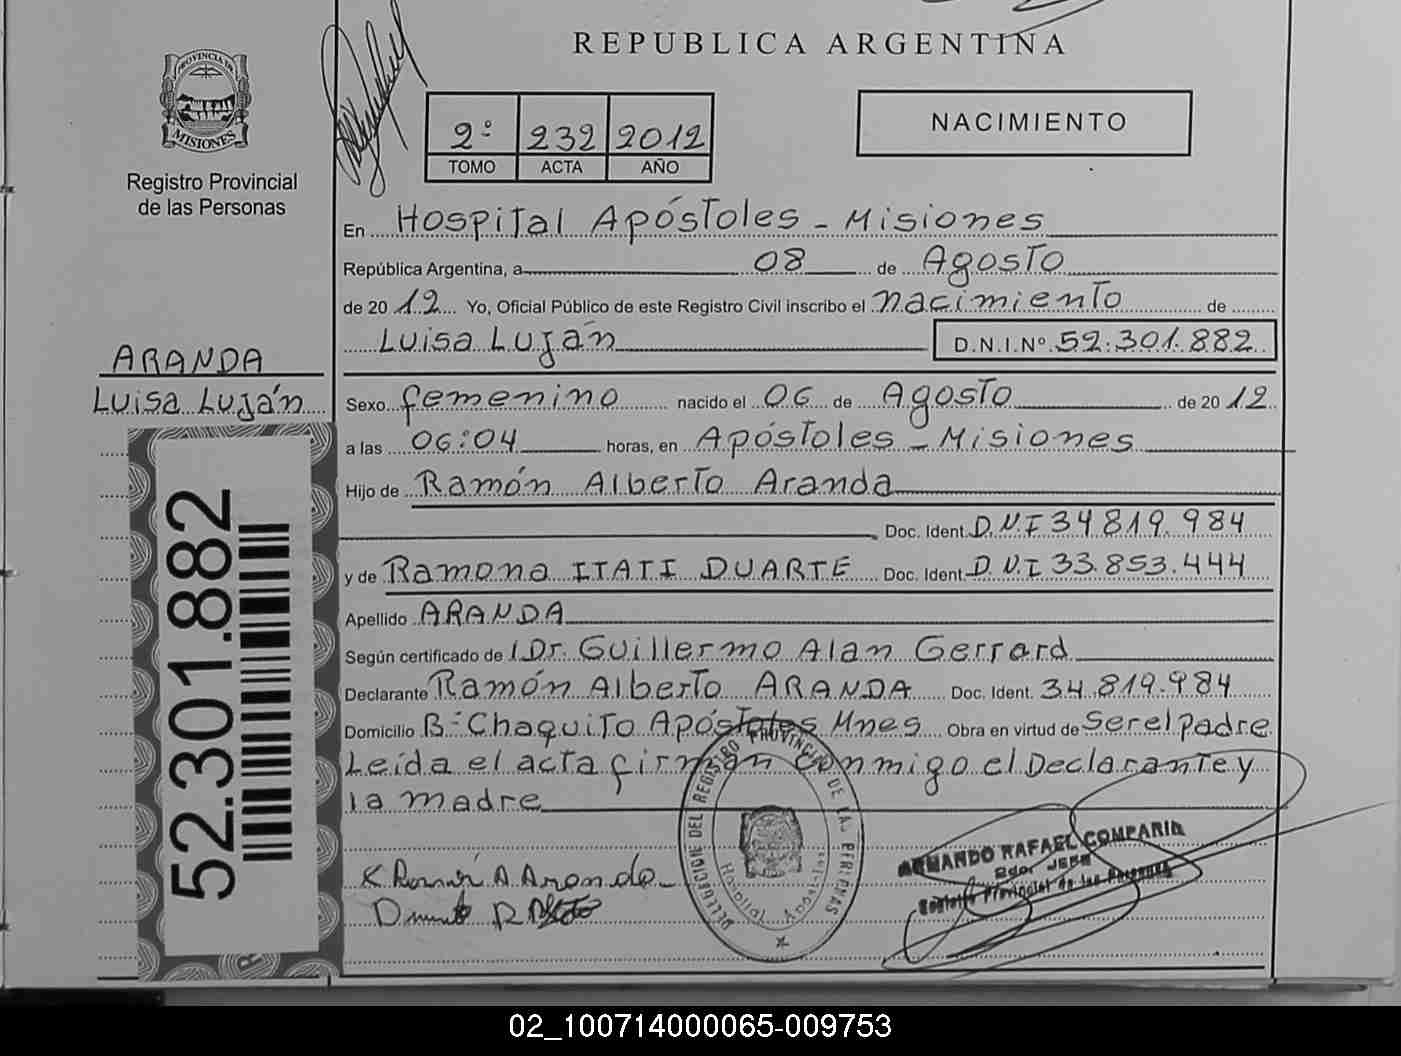 REPUBLICA ARGENTINA
PROVINCIA DE
MISIONES
Registro Provincial
de las Personas
2º 232 2012
TOMO ACTA AÑO
NACIMIENTO
En Hospital Apóstoles - Misiones
República Argentina, a 08 de Agosto
de 2012 Yo, Oficial Público de este Registro Civil inscribo el nacimiento de
Luisa Luján D.N.I.Nº 52.301.882
ARANDA
Luisa Luján
Sexo femenino nacido el 06 de Agosto de 2012
a las 06:04 horas, en Apóstoles - Misiones
Hijo de Ramón Alberto Aranda
Doc. Ident. D.N.I 34.819.984
y de Ramona ITATI DUARTE Doc. Ident. D.N.I 33.853.444
Apellido ARANDA
Según certificado de Dr. Guillermo Alan Gerrard
Declarante Ramón Alberto ARANDA Doc. Ident. 34.819.984
Domicilio Bº Chaquito Apóstoles Mnes Obra en virtud de Ser el padre
Leída el acta firman conmigo el Declarante y
la madre
52.301.882
DELEGACION DEL REGISTRO PROVINCIAL DE LAS PERSONAS
Hospital Apostoles
ARMANDO RAFAEL COMPARIN
JEFE
Registro Provincial de las Personas
02_100714000065-009753